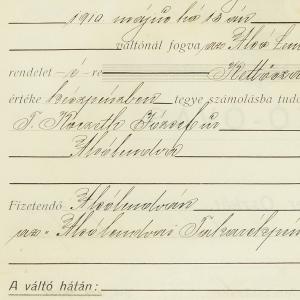 1910 május hó 13 án
váltónál fogva az Alsó Len
rendelet -é- re Kettőszá
értéke készpénzben tegye számolásba tudó
T. Horváth József úr
Alsólendva
Fizetendő Alsólendván
az Alsólendvai Takarékpén
A váltó hátán: